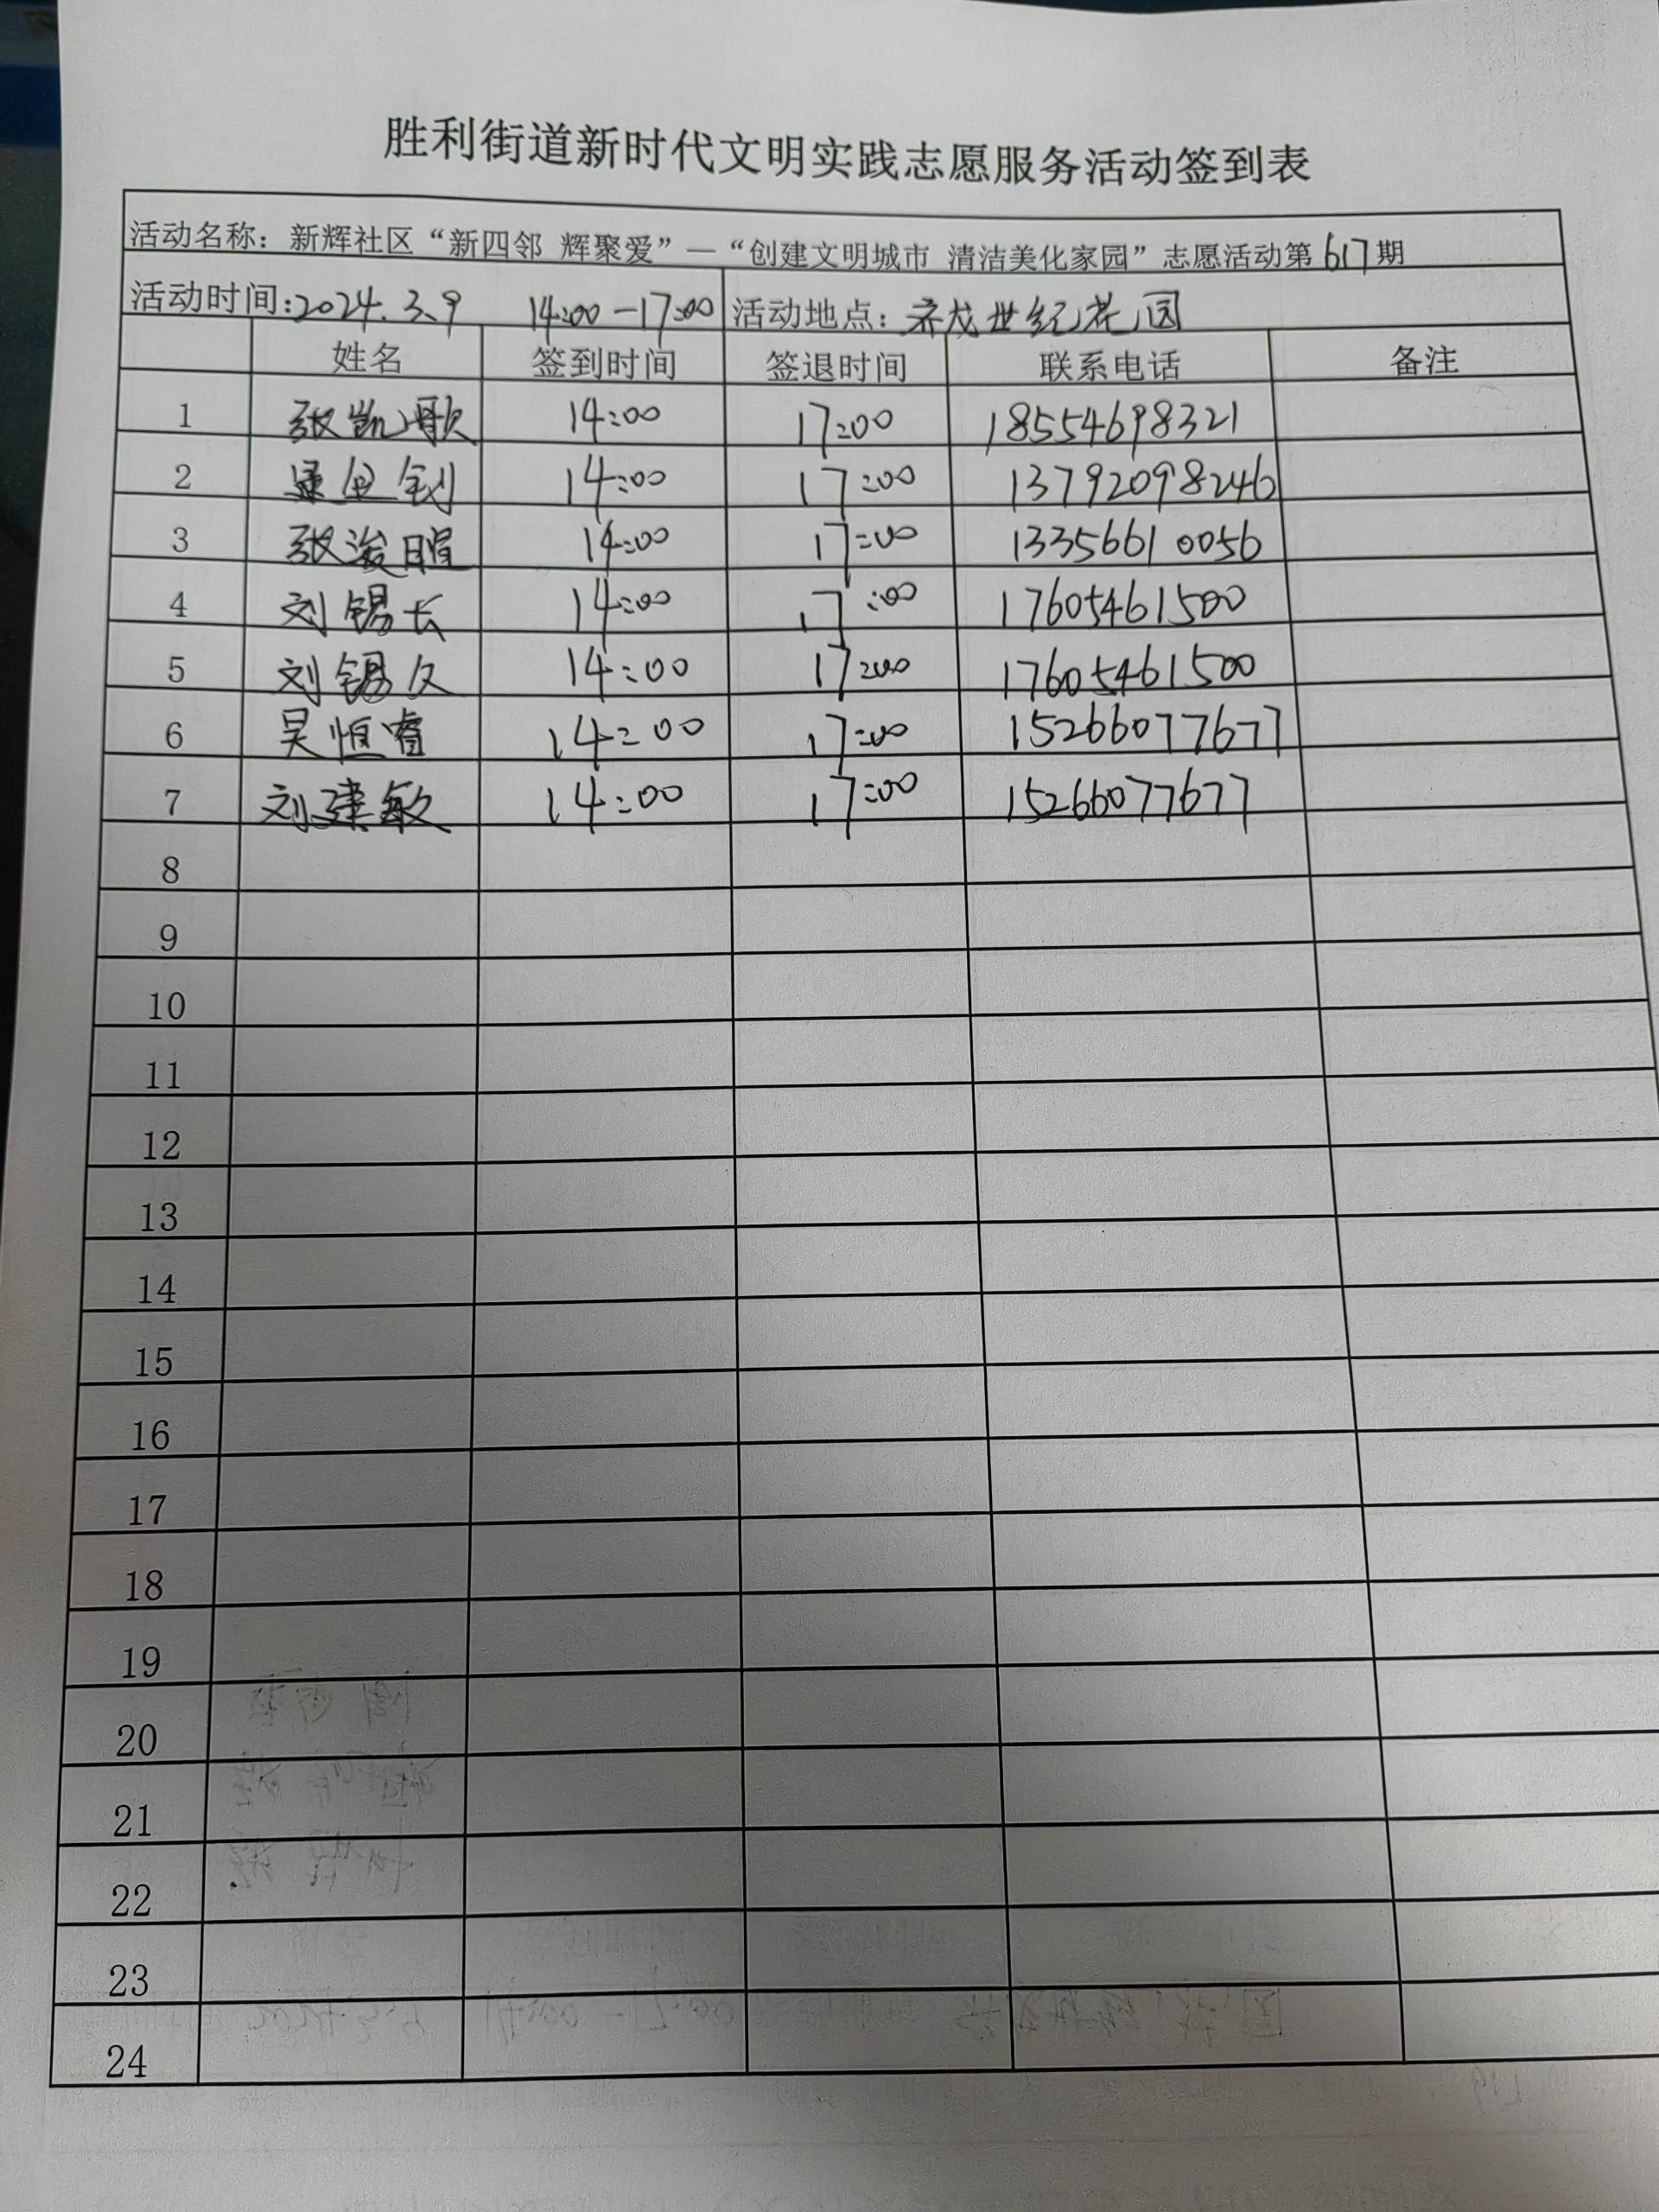 胜利街道新时代文明实践志愿服务活动签到表
活动名称：新辉社区“新四邻 辉聚爱”—“创建文明城市 清洁美化家园”志愿活动第617期
活动时间:2024.3.9 14:00-17:00 活动地点：世纪花园
姓名 签到时间 签退时间 联系电话 备注
1 张凯歌 14:00 17:00 18554698321
2 14:00 17:00 13792098246
3 张浚 14:00 17:00 13356610056
4 刘锡长 14:00 17:00 17605461500
5 刘锡久 14:00 17:00 17605461500
6 吴恒睿 14:00 17:00 15266077677
7 刘建敏 14:00 17:00 15266077677
8
9
10
11
12
13
14
15
16
17
18
19
20
21
22
23
24